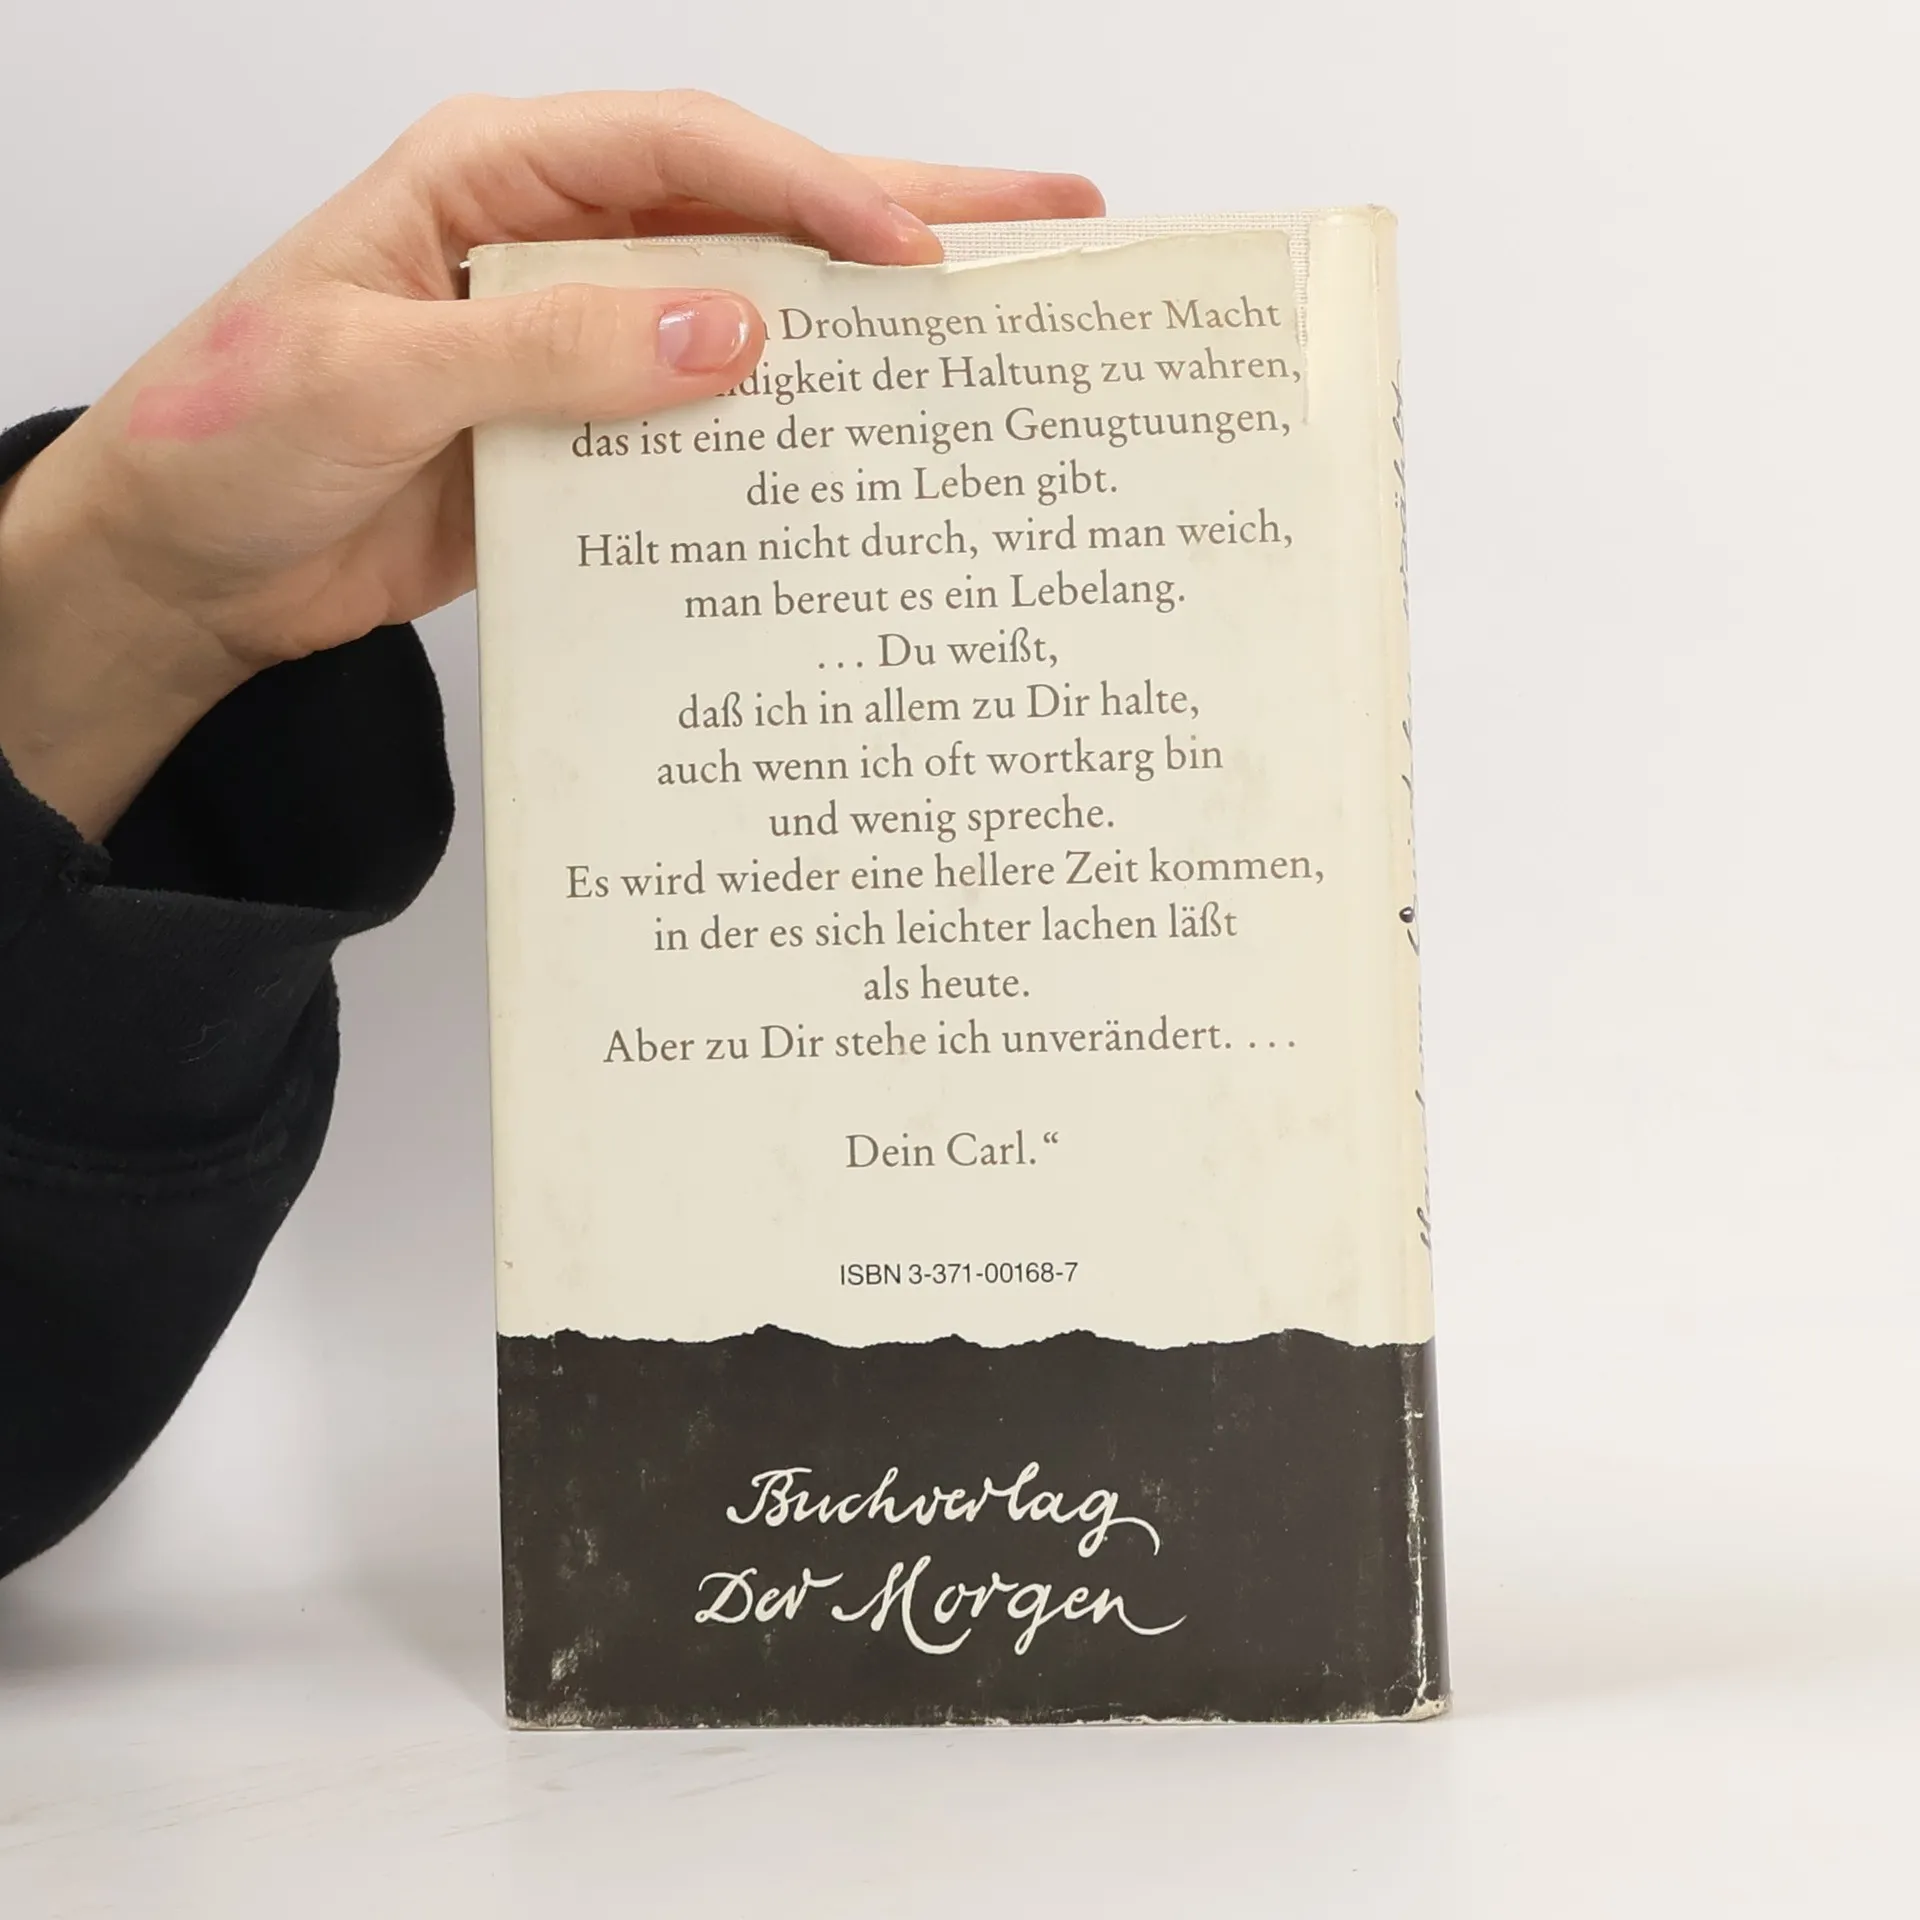 Drohungen irdischer Macht
der Haltung zu wahren,
das ist eine der wenigen Genugtuungen,
die es im Leben gibt.
Hält man nicht durch, wird man weich,
man bereut es ein Lebelang.
... Du weißt,
daß ich in allem zu Dir halte,
auch wenn ich oft wortkarg bin
und wenig spreche.
Es wird wieder eine hellere Zeit kommen,
in der es sich leichter lachen läßt
als heute.
Aber zu Dir stehe ich unverändert. ...
Dein Carl.“
ISBN 3-371-00168-7
Buchverlag
Der Morgen